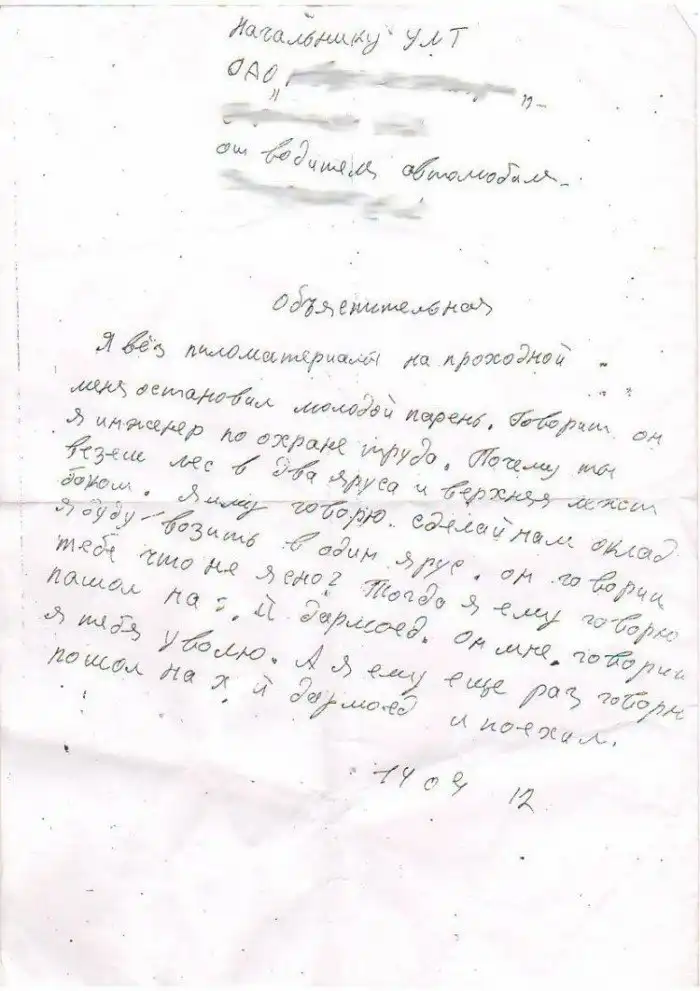 Начальнику УМТ
ОАО "
от водителя автомобиля
Объяснительная
Я вёз пиломатериалы на проходной
меня остановил молодой парень. Говорит он
я инженер по охране труда. Почему ты
везеш лес в два яруса и верхняя лежит
боком. Я ему говорю. сделай нам оклад
я буду возить в один ярус. он говорит
тебе что не ясно? Тогда я ему говорю
пашол на й дармоед. он мне. говорит
я тебя уволю. А я ему еще раз говорю
пошол на х й дармоед и поехал.
14 04 12